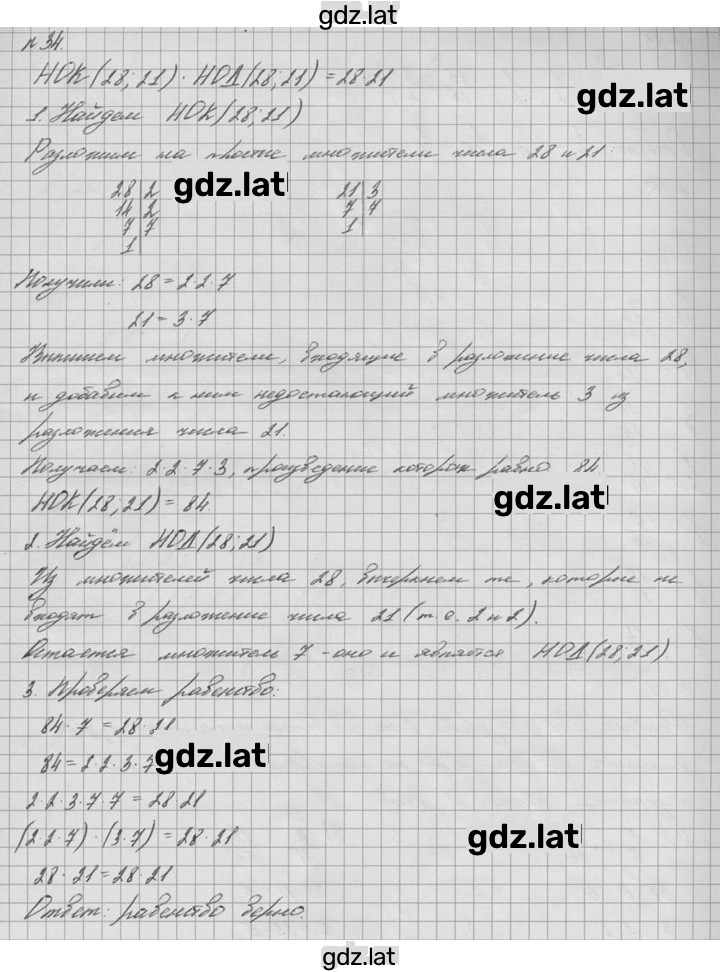 gdz.lat
№34.
НОК(28;21)·НОД(28;21)=28·21
gdz.lat
1. Найдем НОК(28;21)
Разложим на простые множители числа 28 и 21:
28|2 gdz.lat 21|3
14|2 7|7
7|7 1|
1|
Получили: 28=2·2·7
21=3·7
Выпишем множители, входящие в разложение числа 28,
и добавим к ним недостающий множитель 3 из
разложения числа 21.
Получаем: 2·2·7·3, произведение которых равно 84
НОК(28;21)=84.
gdz.lat
2. Найдём НОД(28;21)
Из множителей числа 28, вычеркнем те, которые не
входят в разложение числа 21(т.е. 2 и 2).
Остается множители 7 - оно и является НОД(28;21)
3. Проверяем равенство:
84·7=28·21
84=2·2·3·7
gdz.lat
2·2·3·7·7=28·21
(2·2·7)·(3·7)=28·21
gdz.lat
28·21=28·21
Ответ: равенство верно.
gdz.lat